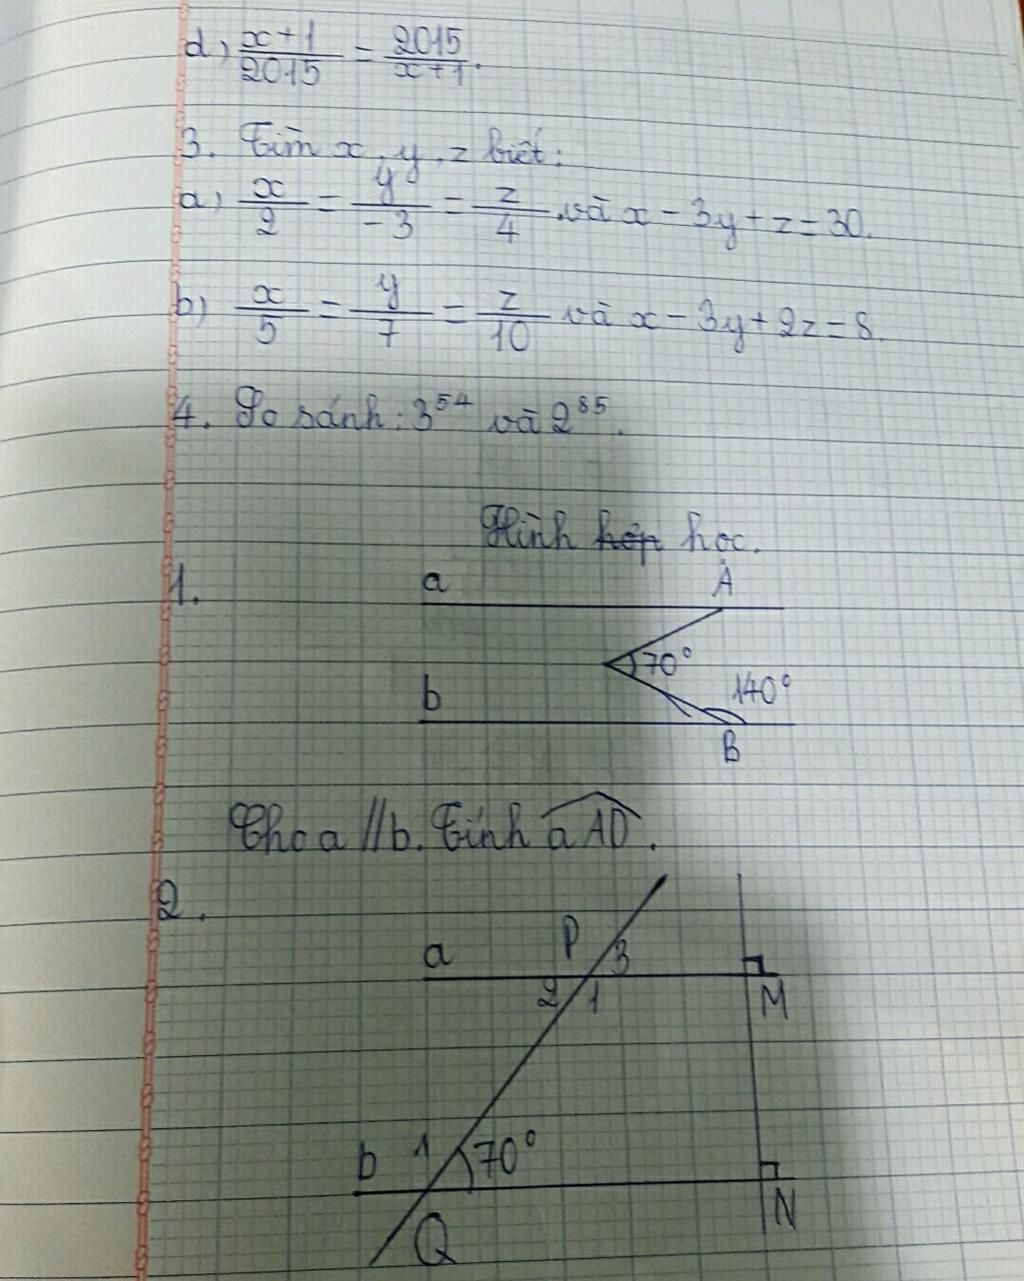 d) x+1/2015 = 2015/x+1.
3. Tìm x, y, z biết:
a) x/2 = y/-3 = z/4 và x - 3y + z = 30.
b) x/5 = y/7 = z/10 và x - 3y + 2z = 8.
4. So sánh: 3^54 và 2^85.
Hình hợp học.
1.
a A
70°
140°
b
B
Cho a // b. Tính aAO.
2.
a P 3
2 1 M
b 1 70°
Q N